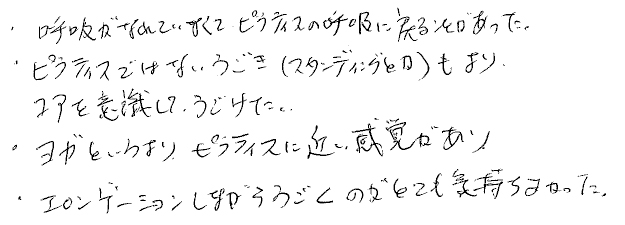 ・呼吸がなれていなくてピラティスの呼吸に戻る時があった。
・ピラティスではないうごき(スタンディングとか)もあり、
コアを意識してうごけた。
・ヨガというより、ピラティスに近い感覚があり
・エロンゲーションしながらうごくのがとても気持ちよかった。